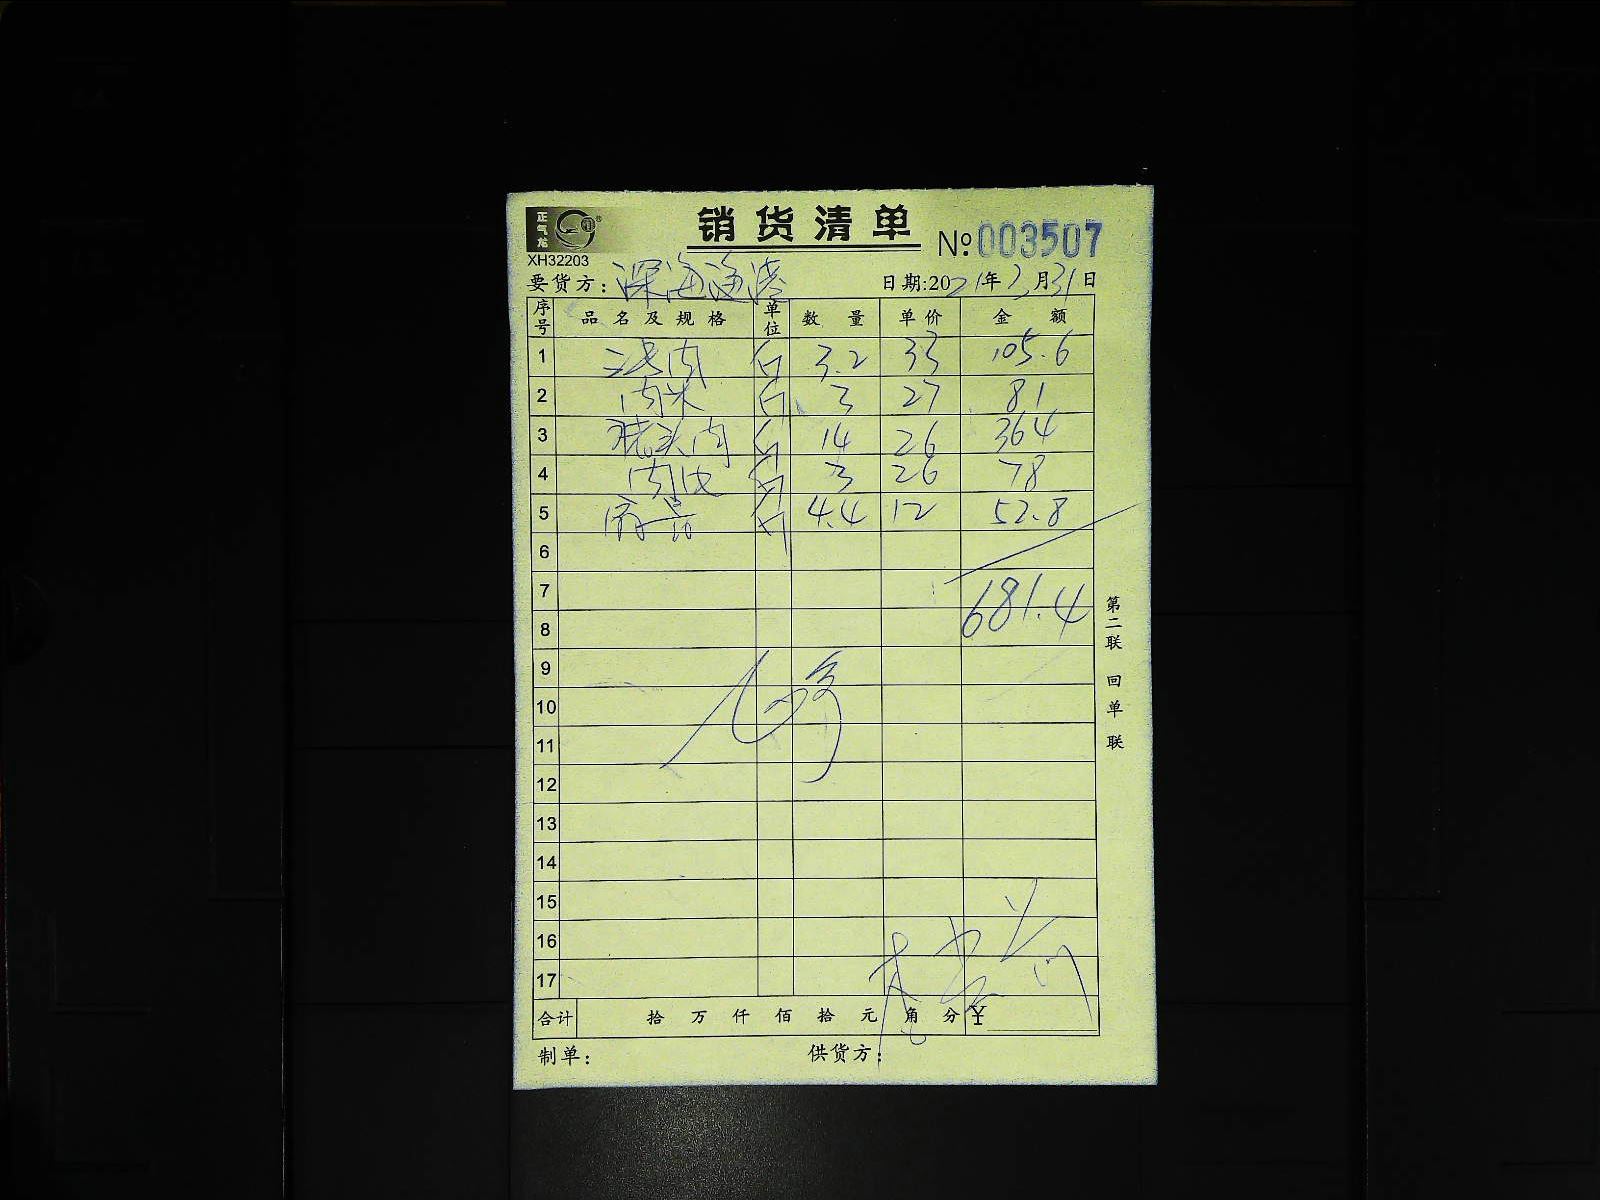 正气龙
销货清单
XH32203
№003507
要货方：深海渔港
日期:2021年3月31日
序号 品名及规格 单位 数量 单价 金额
1 3.2 33 105.6
2 肉米 3 27 81
3 猪头肉 14 26 364
4 3 26 78
5 4.4 12 52.8
6
7 681.4
8
9
10
11
12
13
14
15
16
17
合计 拾 万 仟 佰 拾 元 角 分 ¥
制单：
供货方：
第二联 回单联